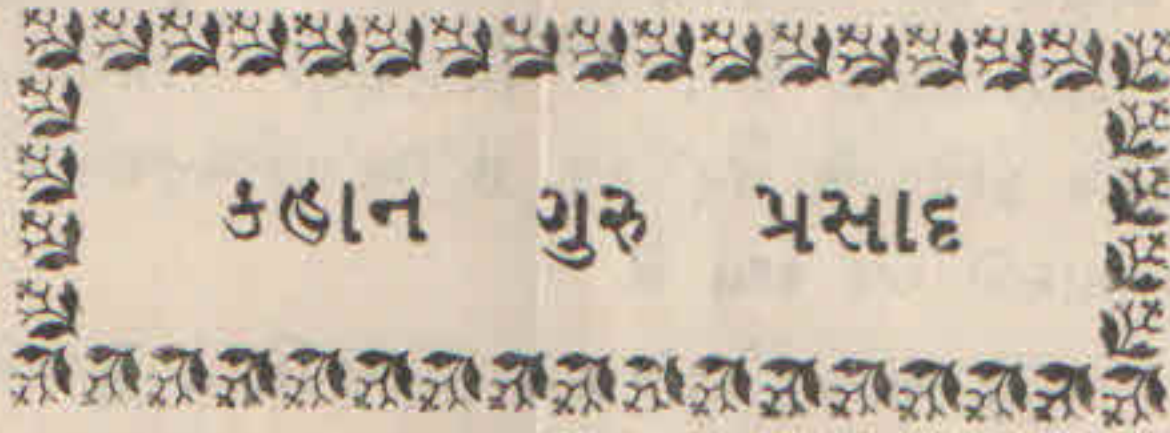 કહાન ગુરુ પ્રસાદ